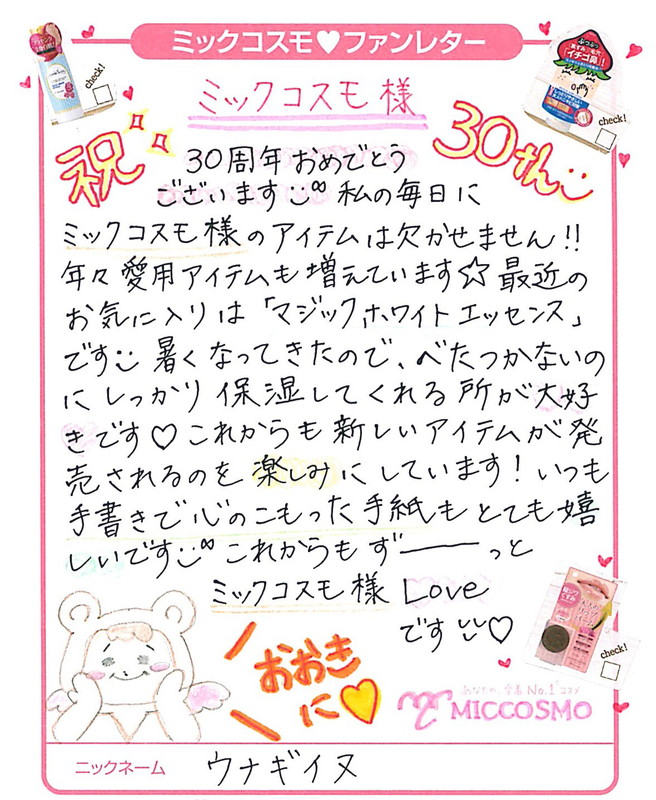 ミックコスモ♥ファンレター
check!
イチゴ鼻!!
check!
ミックコスモ様
祝
30th
30周年おめでとう
ございます 私の毎日に
ミックコスモ様のアイテムは欠かせません!!
年々愛用アイテムも増えています☆最近の
お気に入りは「マジックホワイトエッセンス」
です 暑くなってきたので、べたつかないの
にしっかり保湿してくれる所が大好
きです♡これからも新しいアイテムが発
売されるのを楽しみにしています!いつも
手書きで心のこもった手紙もとても嬉
しいです これからもずーーっと
ミックコスモ様 Love
です♡
おおきに
check!
あなたの、今着No.1コスメ
MICCOSMO
ニックネーム ウナギイヌ